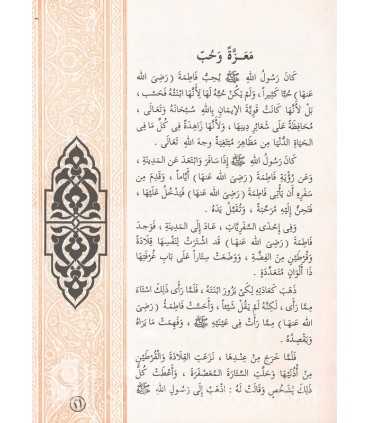 مَعَزَّةٌ وَحُبّ
كَانَ رَسُولُ اللهِ ﷺ يُحِبُّ فَاطِمَةَ (رَضِيَ الله
عَنهَا) حُبًّا كَثِيراً ، وَلَمْ يَكُنْ حُبُّهُ لَهَا لِأَنَّهَا ابْنَتُهُ فَحَسْب ،
بَلْ لأَنَّهَا كَانَتْ قَوِيَّةَ الإِيمَانِ بِاللهِ سُبْحَانَهُ وَتَعَالَى ،
مُحَافِظَةً عَلَى شَعَائِرِ دِينِهَا ، وَلأَنَّهَا زَاهِدَةٌ فِى كُلِّ مَا فِى
الحَيَاةِ الدُّنْيَا مِن مَظَاهِرَ مُبْتَغِيَةً وَجه اللهِ تَعَالَى .
كَانَ رَسُولُ اللهِ ﷺ إِذَا سَافَرَ وَابْتَعَدَ عَنِ المَدِينَةِ ،
وَعَن رُؤْيَةِ فَاطِمَةَ (رَضِيَ الله عَنهَا) أَيَّاماً ، وَقَدِمَ مِن
سَفَرِهِ أَن يَأْتِى فَاطِمَةَ (رَضِيَ الله عَنهَا) فَيَدْخُلُ عَلَيْهَا ،
فَتَحِنُّ إِلَيْهِ مُرَحِّبَةً ، وَتُقَبِّلُ يَدَهُ .
وَفِى إِحْدَى السَّفْرِيَّاتِ ، عَادَ إِلَى المَدِينَةِ ، فَوَجَدَ
فَاطِمَةَ (رَضِيَ الله عَنهَا) قَد اشْتَرَتْ لِنَفْسِهَا قِلَادَةً
وَقُرْطَيْنِ مِنَ الفِضَّةِ ، وَوَضَعَتْ سِتَاراً عَلَى بَابِ غُرْفَتِهَا
ذَا أَلْوَانٍ مُتَعَدِّدَةٍ .
ذَهَبَ كَعَادَتِهِ لِكَىْ يَزُورَ ابْنَتَهُ ، فَلَمَّا رَأَى ذَلِكَ اسْتَاءَ
مِمَّا رَأَى ، لَكِنَّهُ لَمْ يَقُلْ شَيْئاً ، وَأَحَسَّتْ فَاطِمَةُ (رَضِيَ
الله عَنهَا) مِمَّا رَأَتْ فِى عَيْنَيْهِ ﷺ ، وَفَهِمَتْ مَا يَرَاهُ
وَيَقْصِدُهُ .
فَلَمَّا خَرَجَ مِنْ عِندِهَا ، نَزَعَتِ القِلَادَةَ وَالقُرْطَيْنِ
مِنْ أُذُنَيْهَا وَحَلَّتِ السِّتَارَةَ المُعَصْفَرَةَ ، وَأَعْطَتْ كُلَّ
ذَلِكَ لِشَخْصٍ وَقَالَتْ لَهُ : اذْهَبْ إِلَى رَسُولِ اللهِ ﷺ